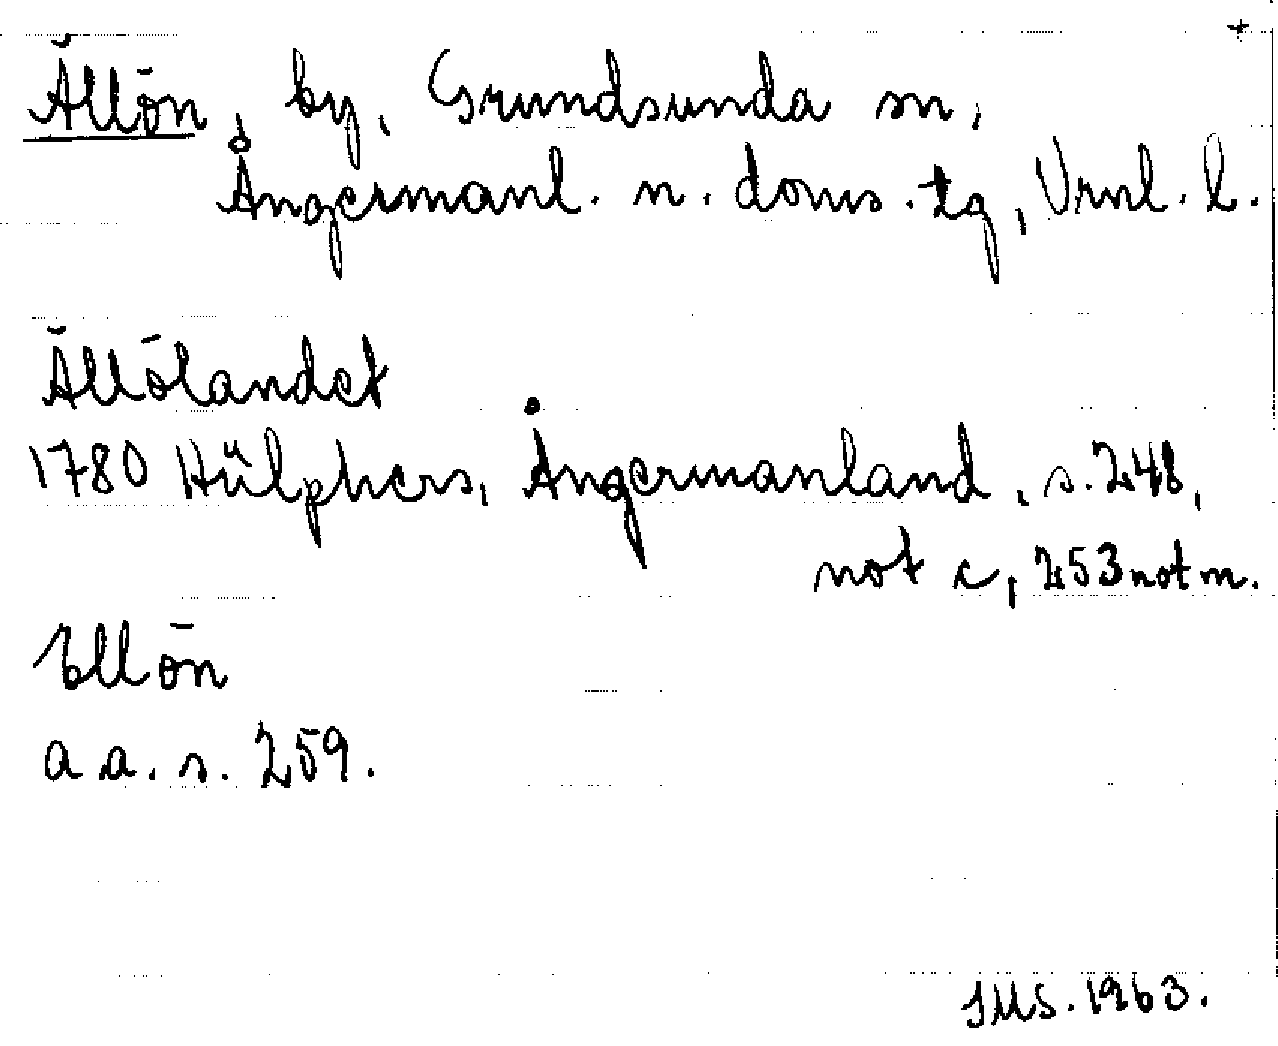 +
Ällön, by, Grundsunda sn,
Ångermanl. n. doms.tg, Vrnl. l.
Ällölandet
1780 Hülphers, Ångermanland, s. 248,
not c, 253 not m.
Ellön
a a. s. 259.
JMS. 1963.